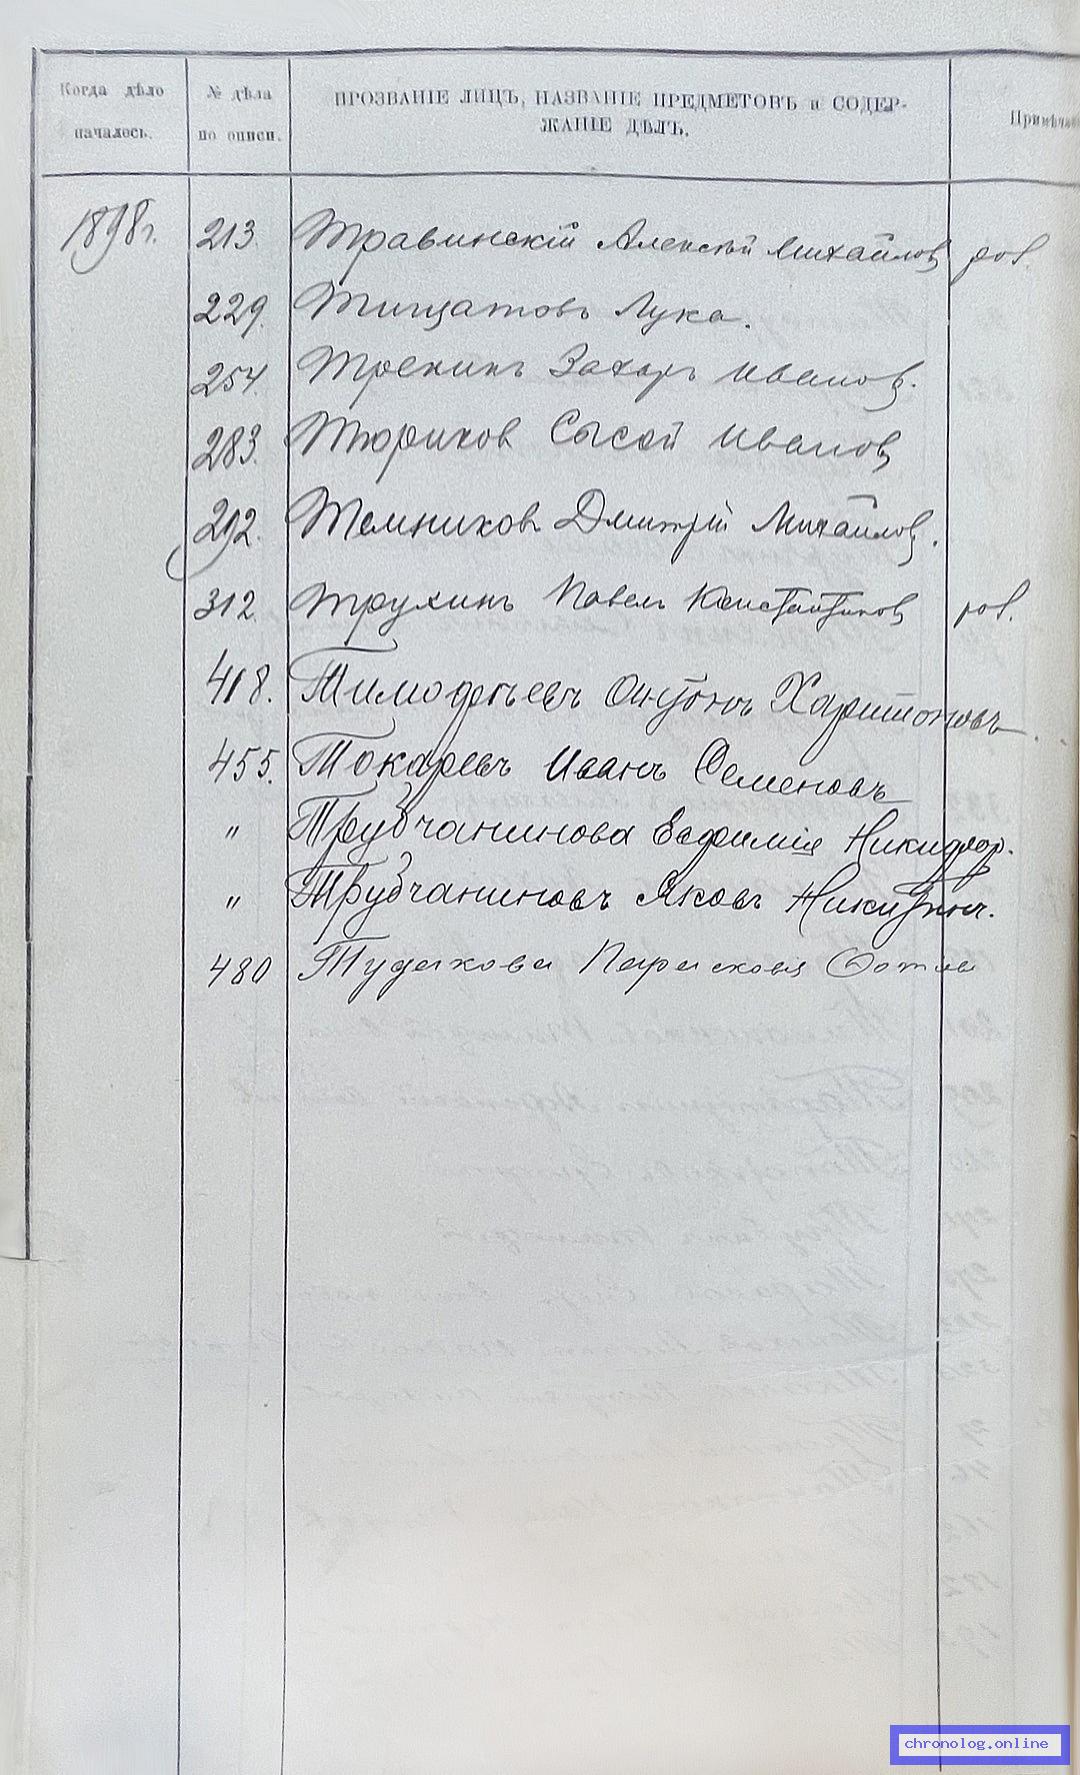 Когда дѣло началось.
№ дѣла по описи.
ПРОЗВАНІЕ ЛИЦЪ, НАЗВАНІЕ ПРЕДМЕТОВЪ и СОДЕР-
ЖАНІЕ ДѢЛЪ.
1898г. 213. Травинскій Алексѣй Михайлов
229. Лука.
254. Трекинъ Захаръ Иванов.
283. Тюриков Сысой Иванов
292. Темников Дмитрій Михайлов.
312 Трухинъ Павелъ Константинов
418. Тимофѣевъ Харитоновъ
455. Токаревъ Иванъ Семеновъ
" Трубчанинова Евфимія Никифор.
" Трубчаниновъ Яковъ Никитин.
480 Тудакова
chronolog.online